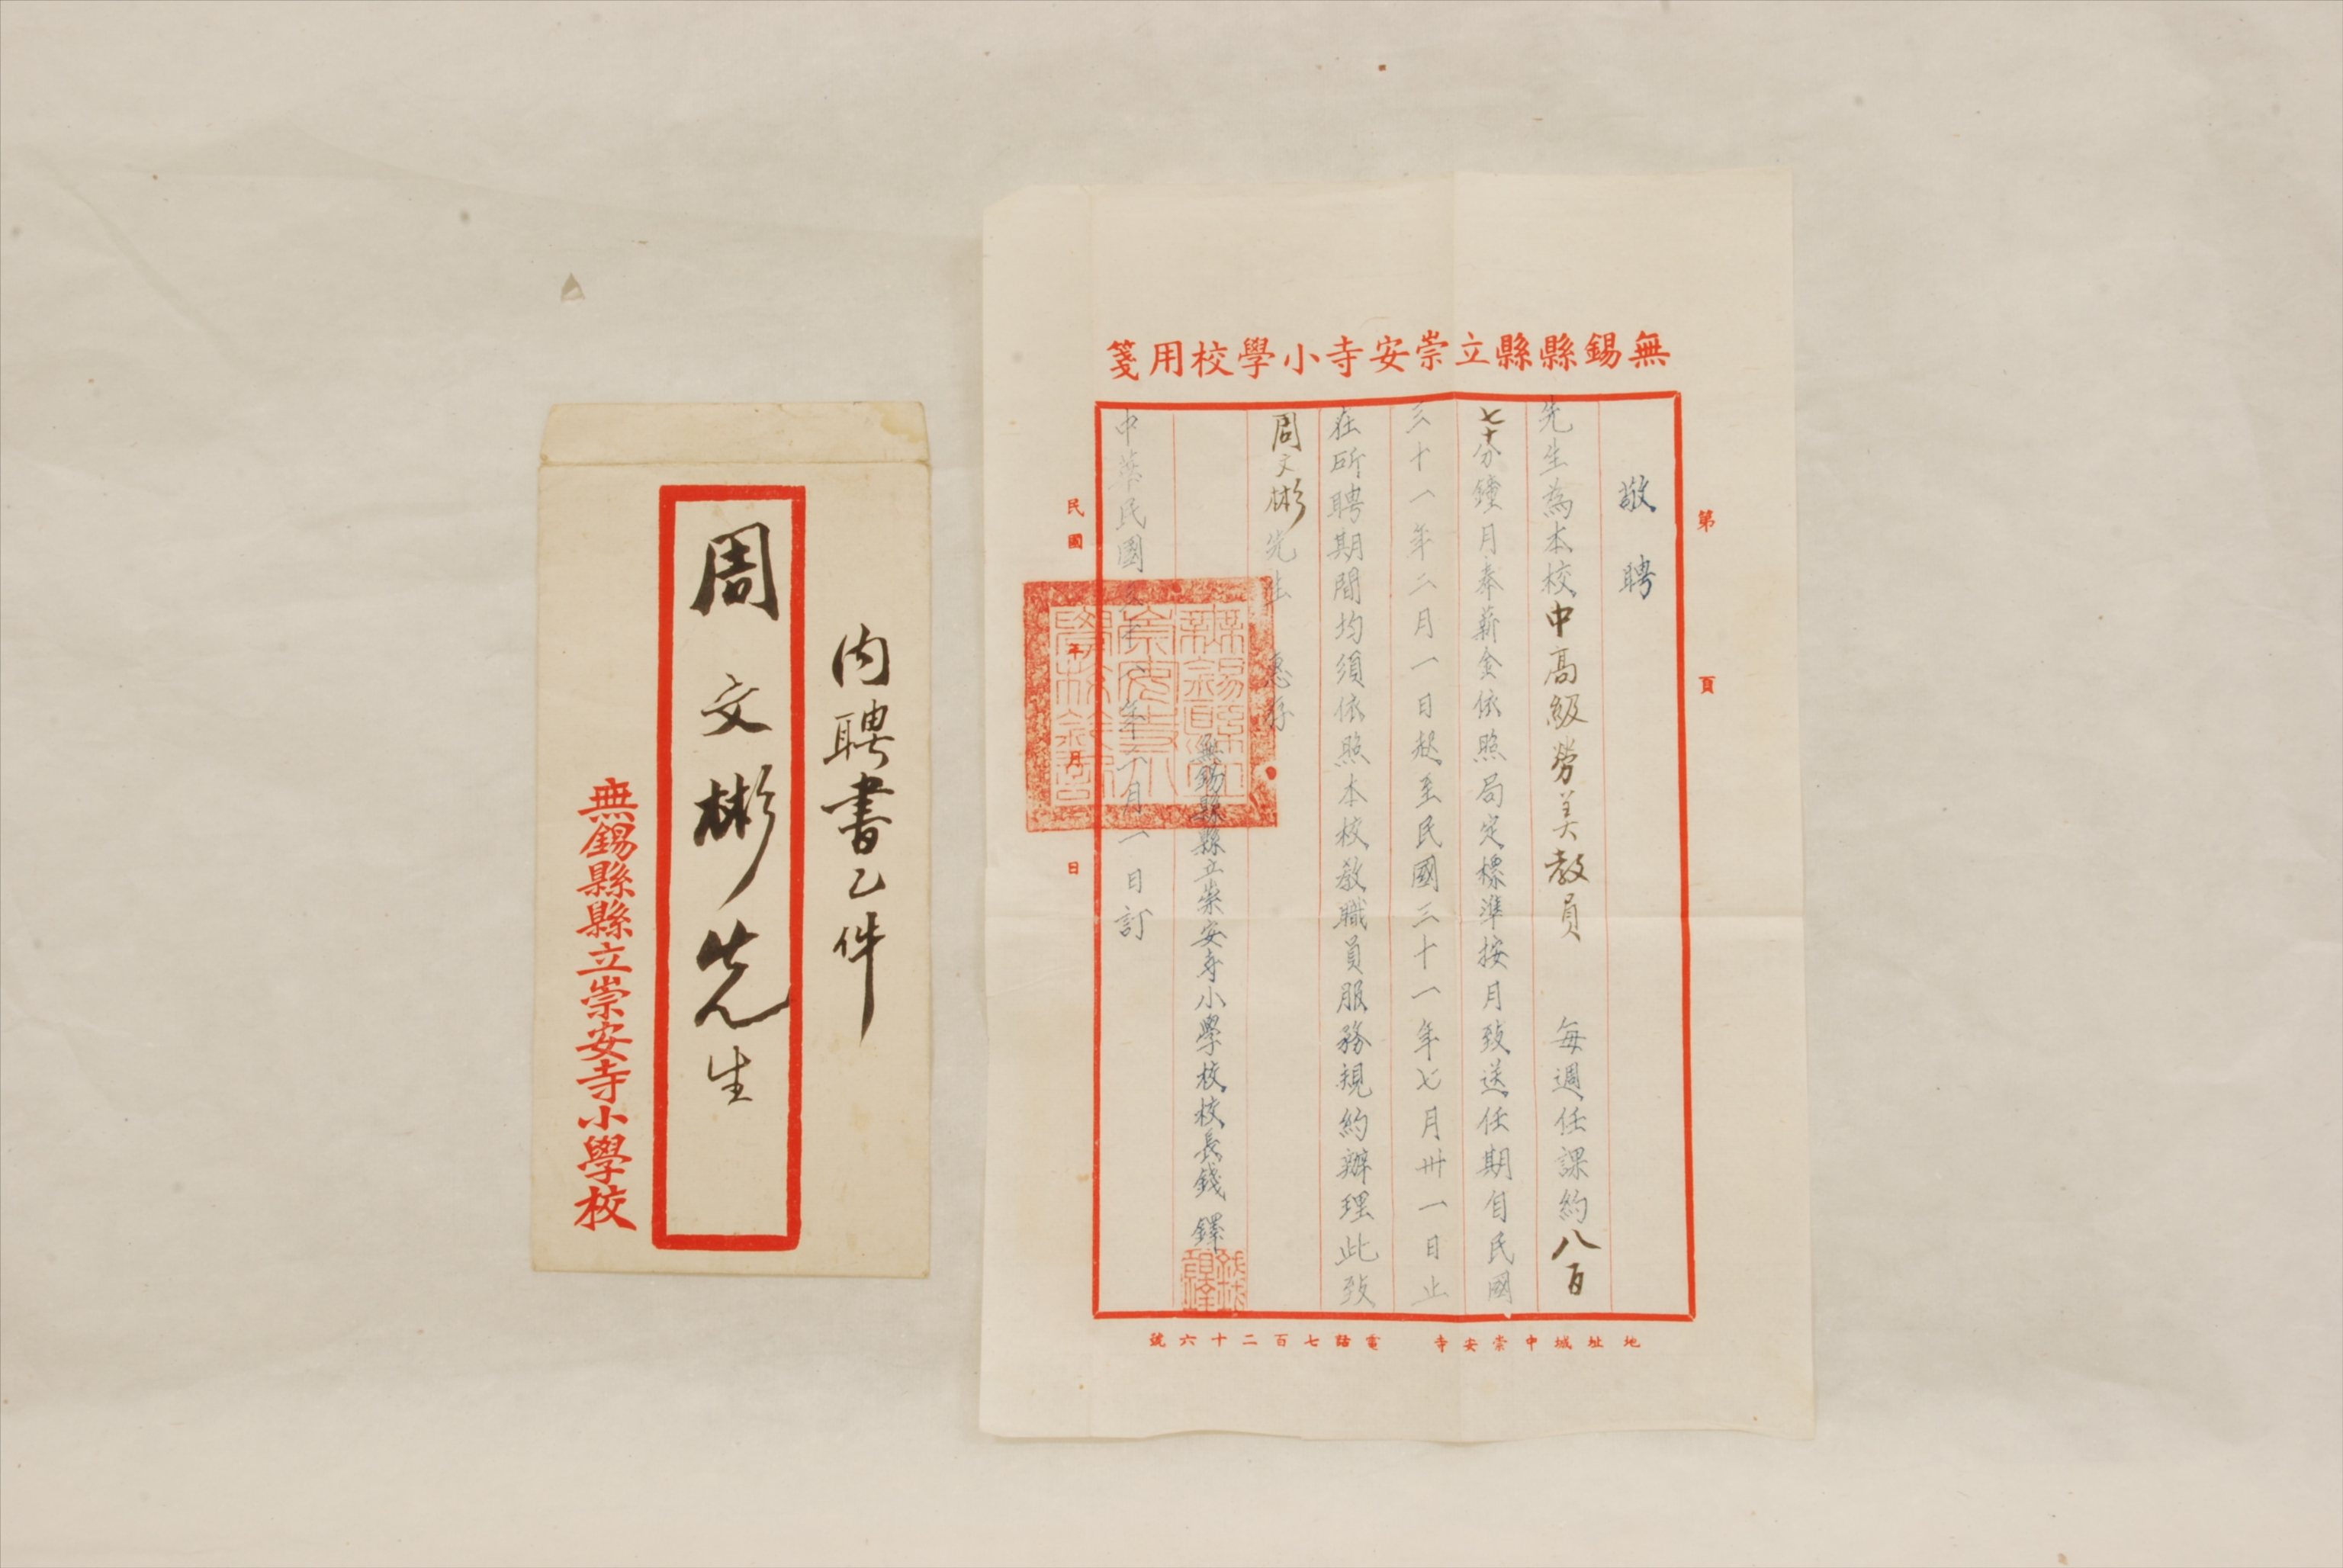 內聘書乙件
周文彬先生
無錫縣縣立崇安寺小學校
無錫縣縣立崇安寺小學校用箋
第 頁
敬聘
先生為本校中高級勞美教員 每週任課約八百
七十分鐘月奉薪金依照局定標準按月致送任期自民國
三十一年二月一日起至民國三十一年七月卅一日止
在所聘期間均須依照本校教職員服務規約辦理此致
周文彬先生 惠存
無錫縣縣立崇安寺小學校校長錢鐸
中華民國三十一年二月一日訂
民國 年 月 日
地址城中崇安寺 電話七百二十六號